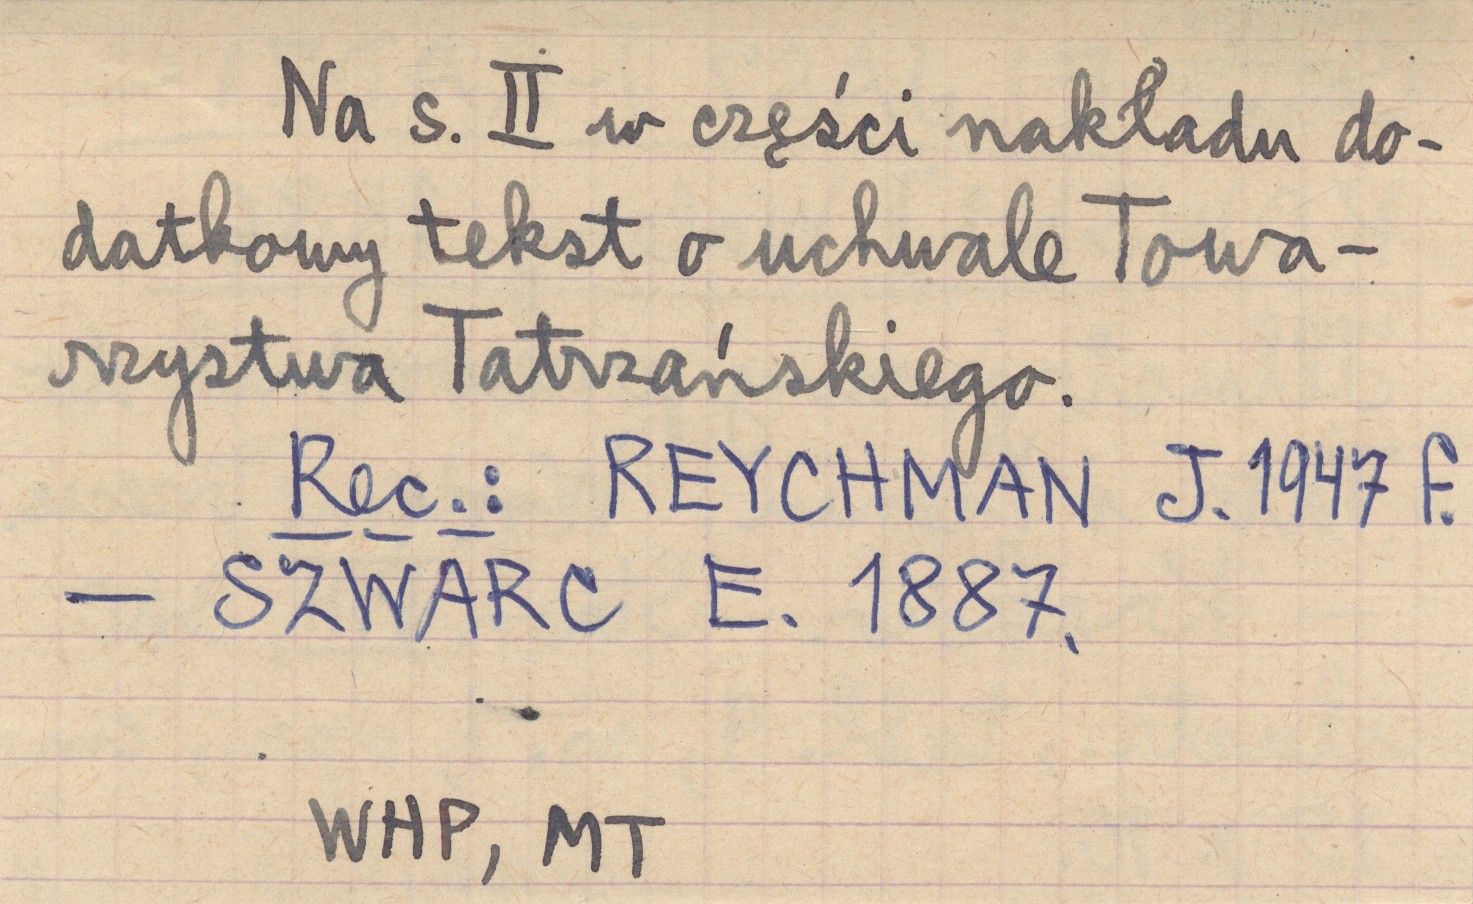 Na s. II w części nakładu do-
datkowy tekst o uchwale Towa-
rzystwa Tatrzańskiego.
Rec.: REYCHMAN J. 1947 f.
— SZWARC E. 1887.
WHP, MT